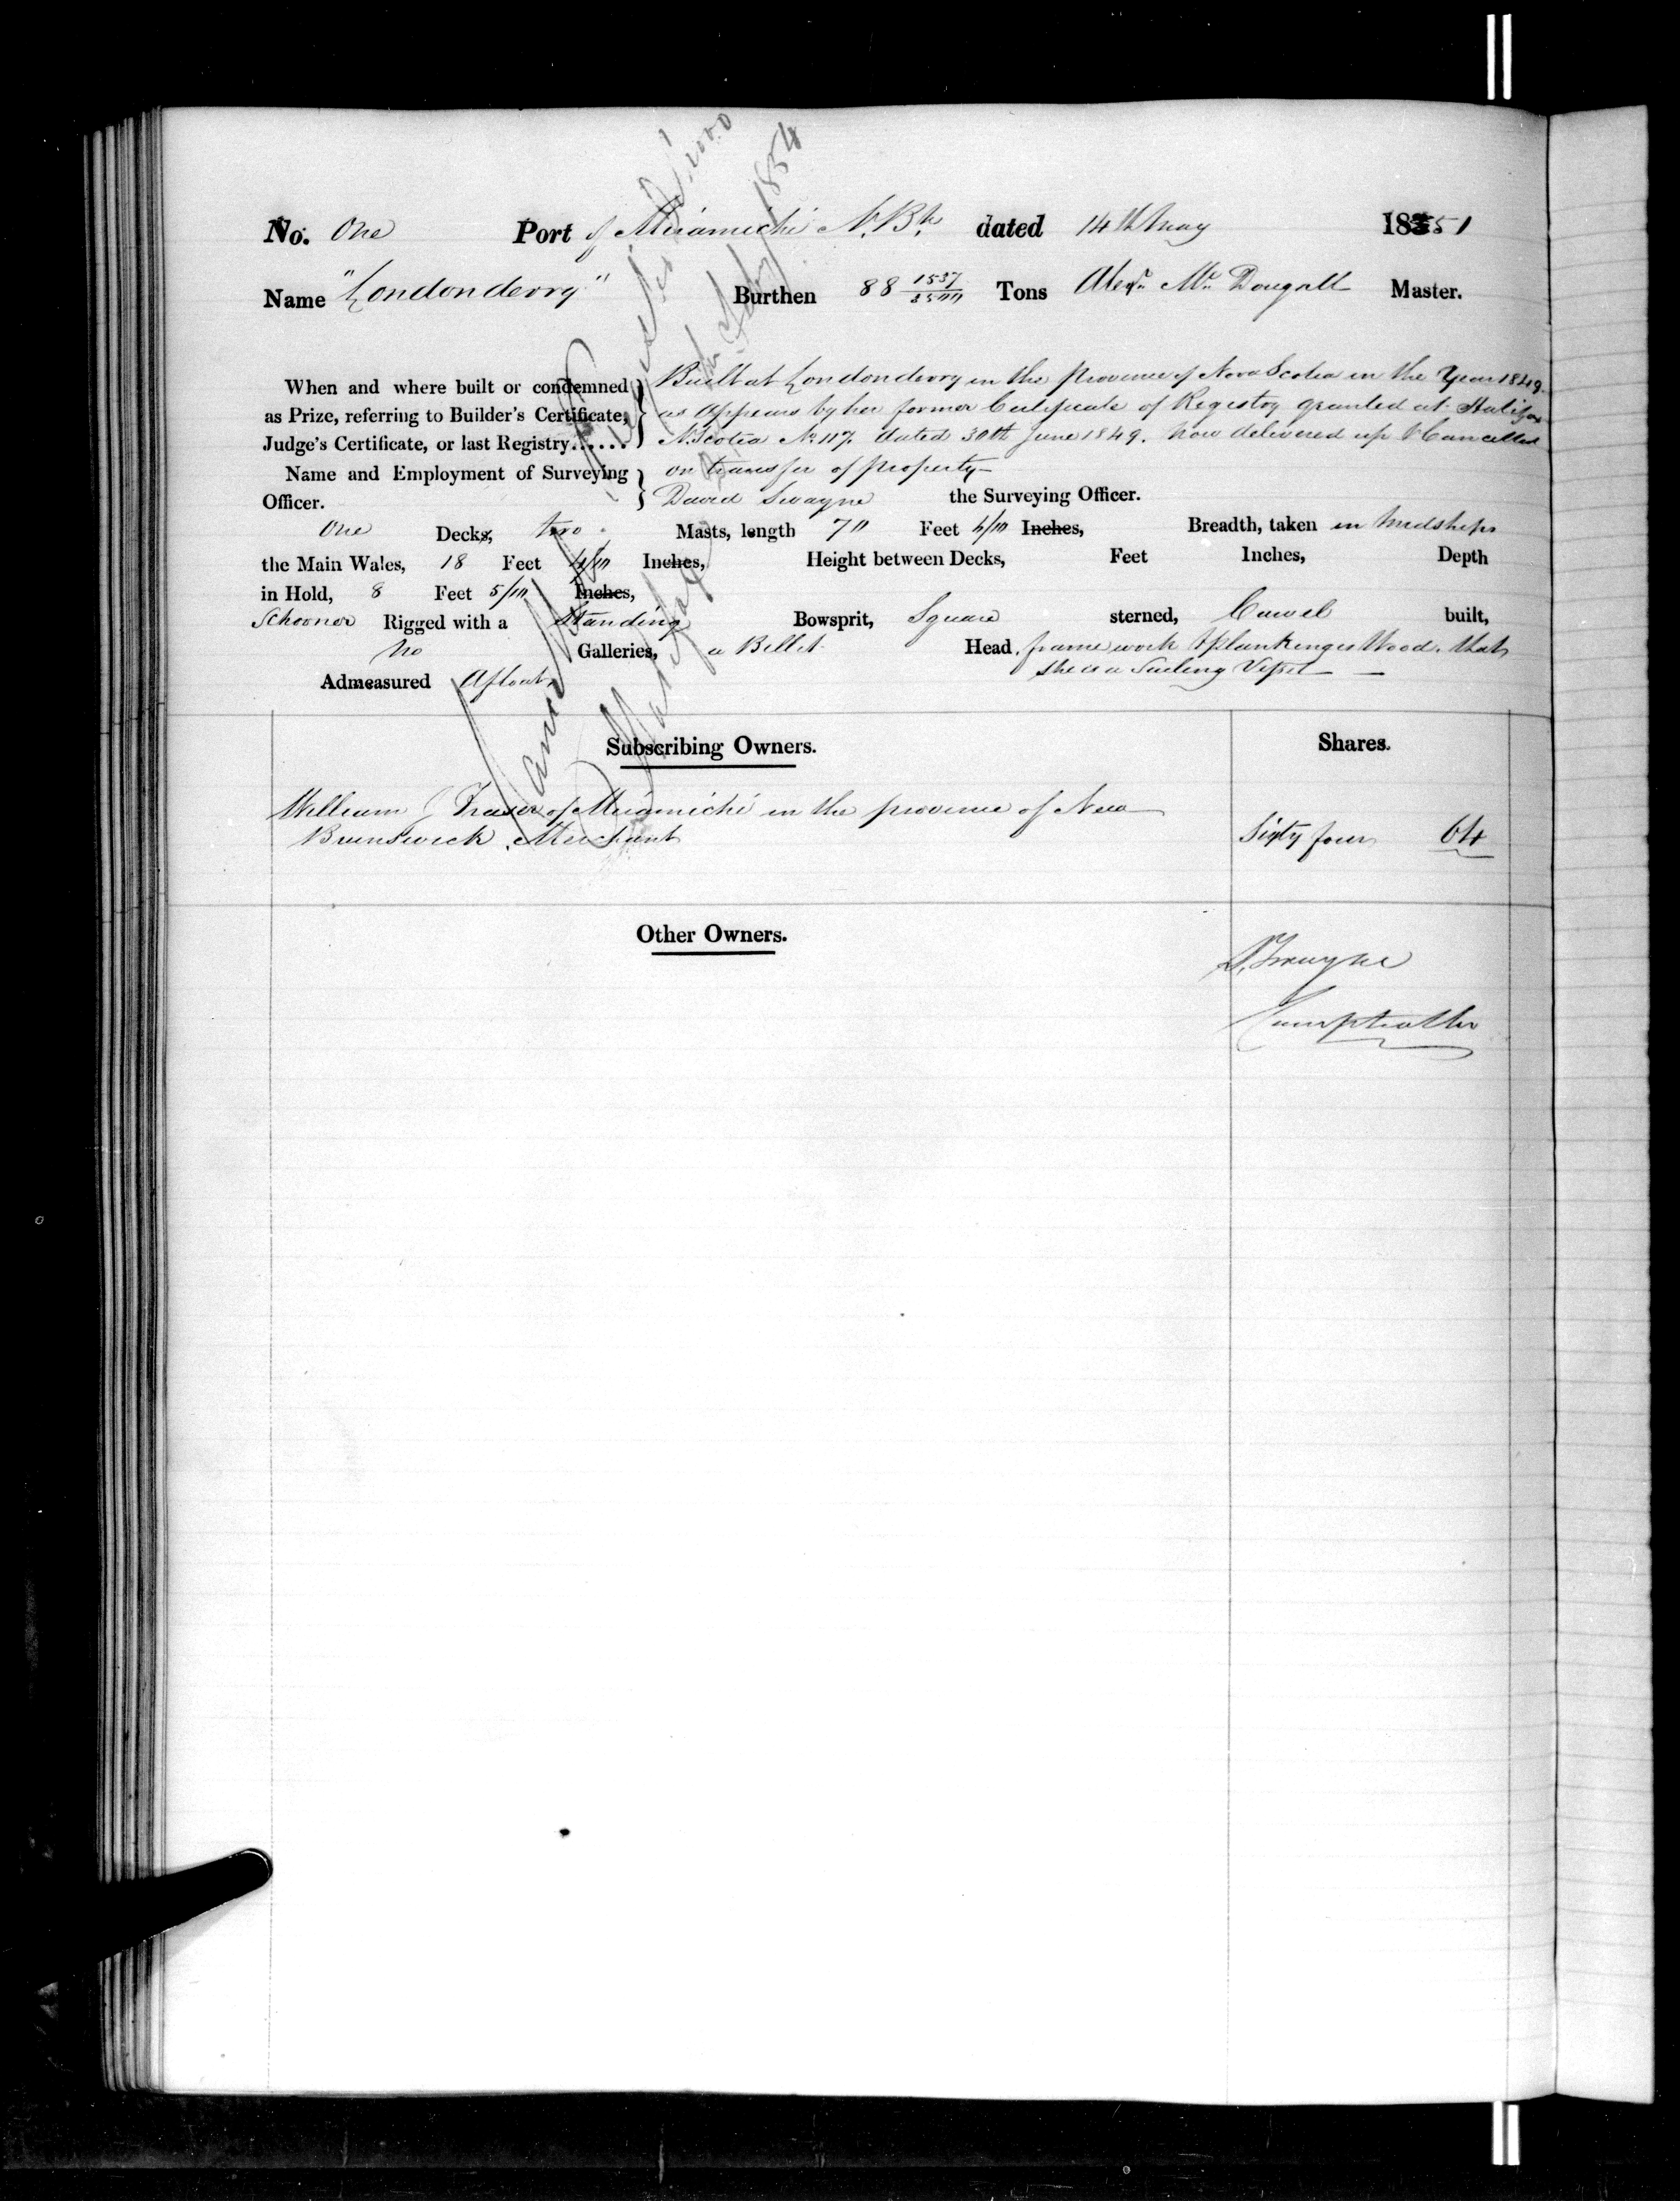 No. One Port of Miramichi N. Bk. dated 14th May 1851
Name "Londonderry" Burthen 88 1537/3500 Tons Alexr. Mc Dougall Master.
When and where built or condemned as Prize, referring to Builder's Certificate, Judge's Certificate, or last Registry......
Built at Londonderry in the province of Nova Scotia in the Year 1849.
as appears by her former Certificate of Registry granted at Halifax
N. Scotia No 117. dated 30th June 1849. now delivered up & Cancelled
on transfer of property
Name and Employment of Surveying Officer.
David Swayne the Surveying Officer.
One Decks, two Masts, length 70 Feet 4/10 Inches, Breadth, taken in Midships
the Main Wales, 18 Feet 4/10 Inches, Height between Decks, Feet Inches, Depth
in Hold, 8 Feet 5/10 Inches,
Schooner Rigged with a Standing Bowsprit, Square sterned, Carvel built,
no Galleries, a Billet Head, frame work & planking is Wood. that
she is a Sailing Vessel
Admeasured Afloat
Registered De Novo
Halifax 1854
Subscribing Owners. Shares.
William J Fraser of Miramichi in the province of New
Brunswick, Merchant Sixty four 64
Other Owners.
D. Swayne
Comptroller